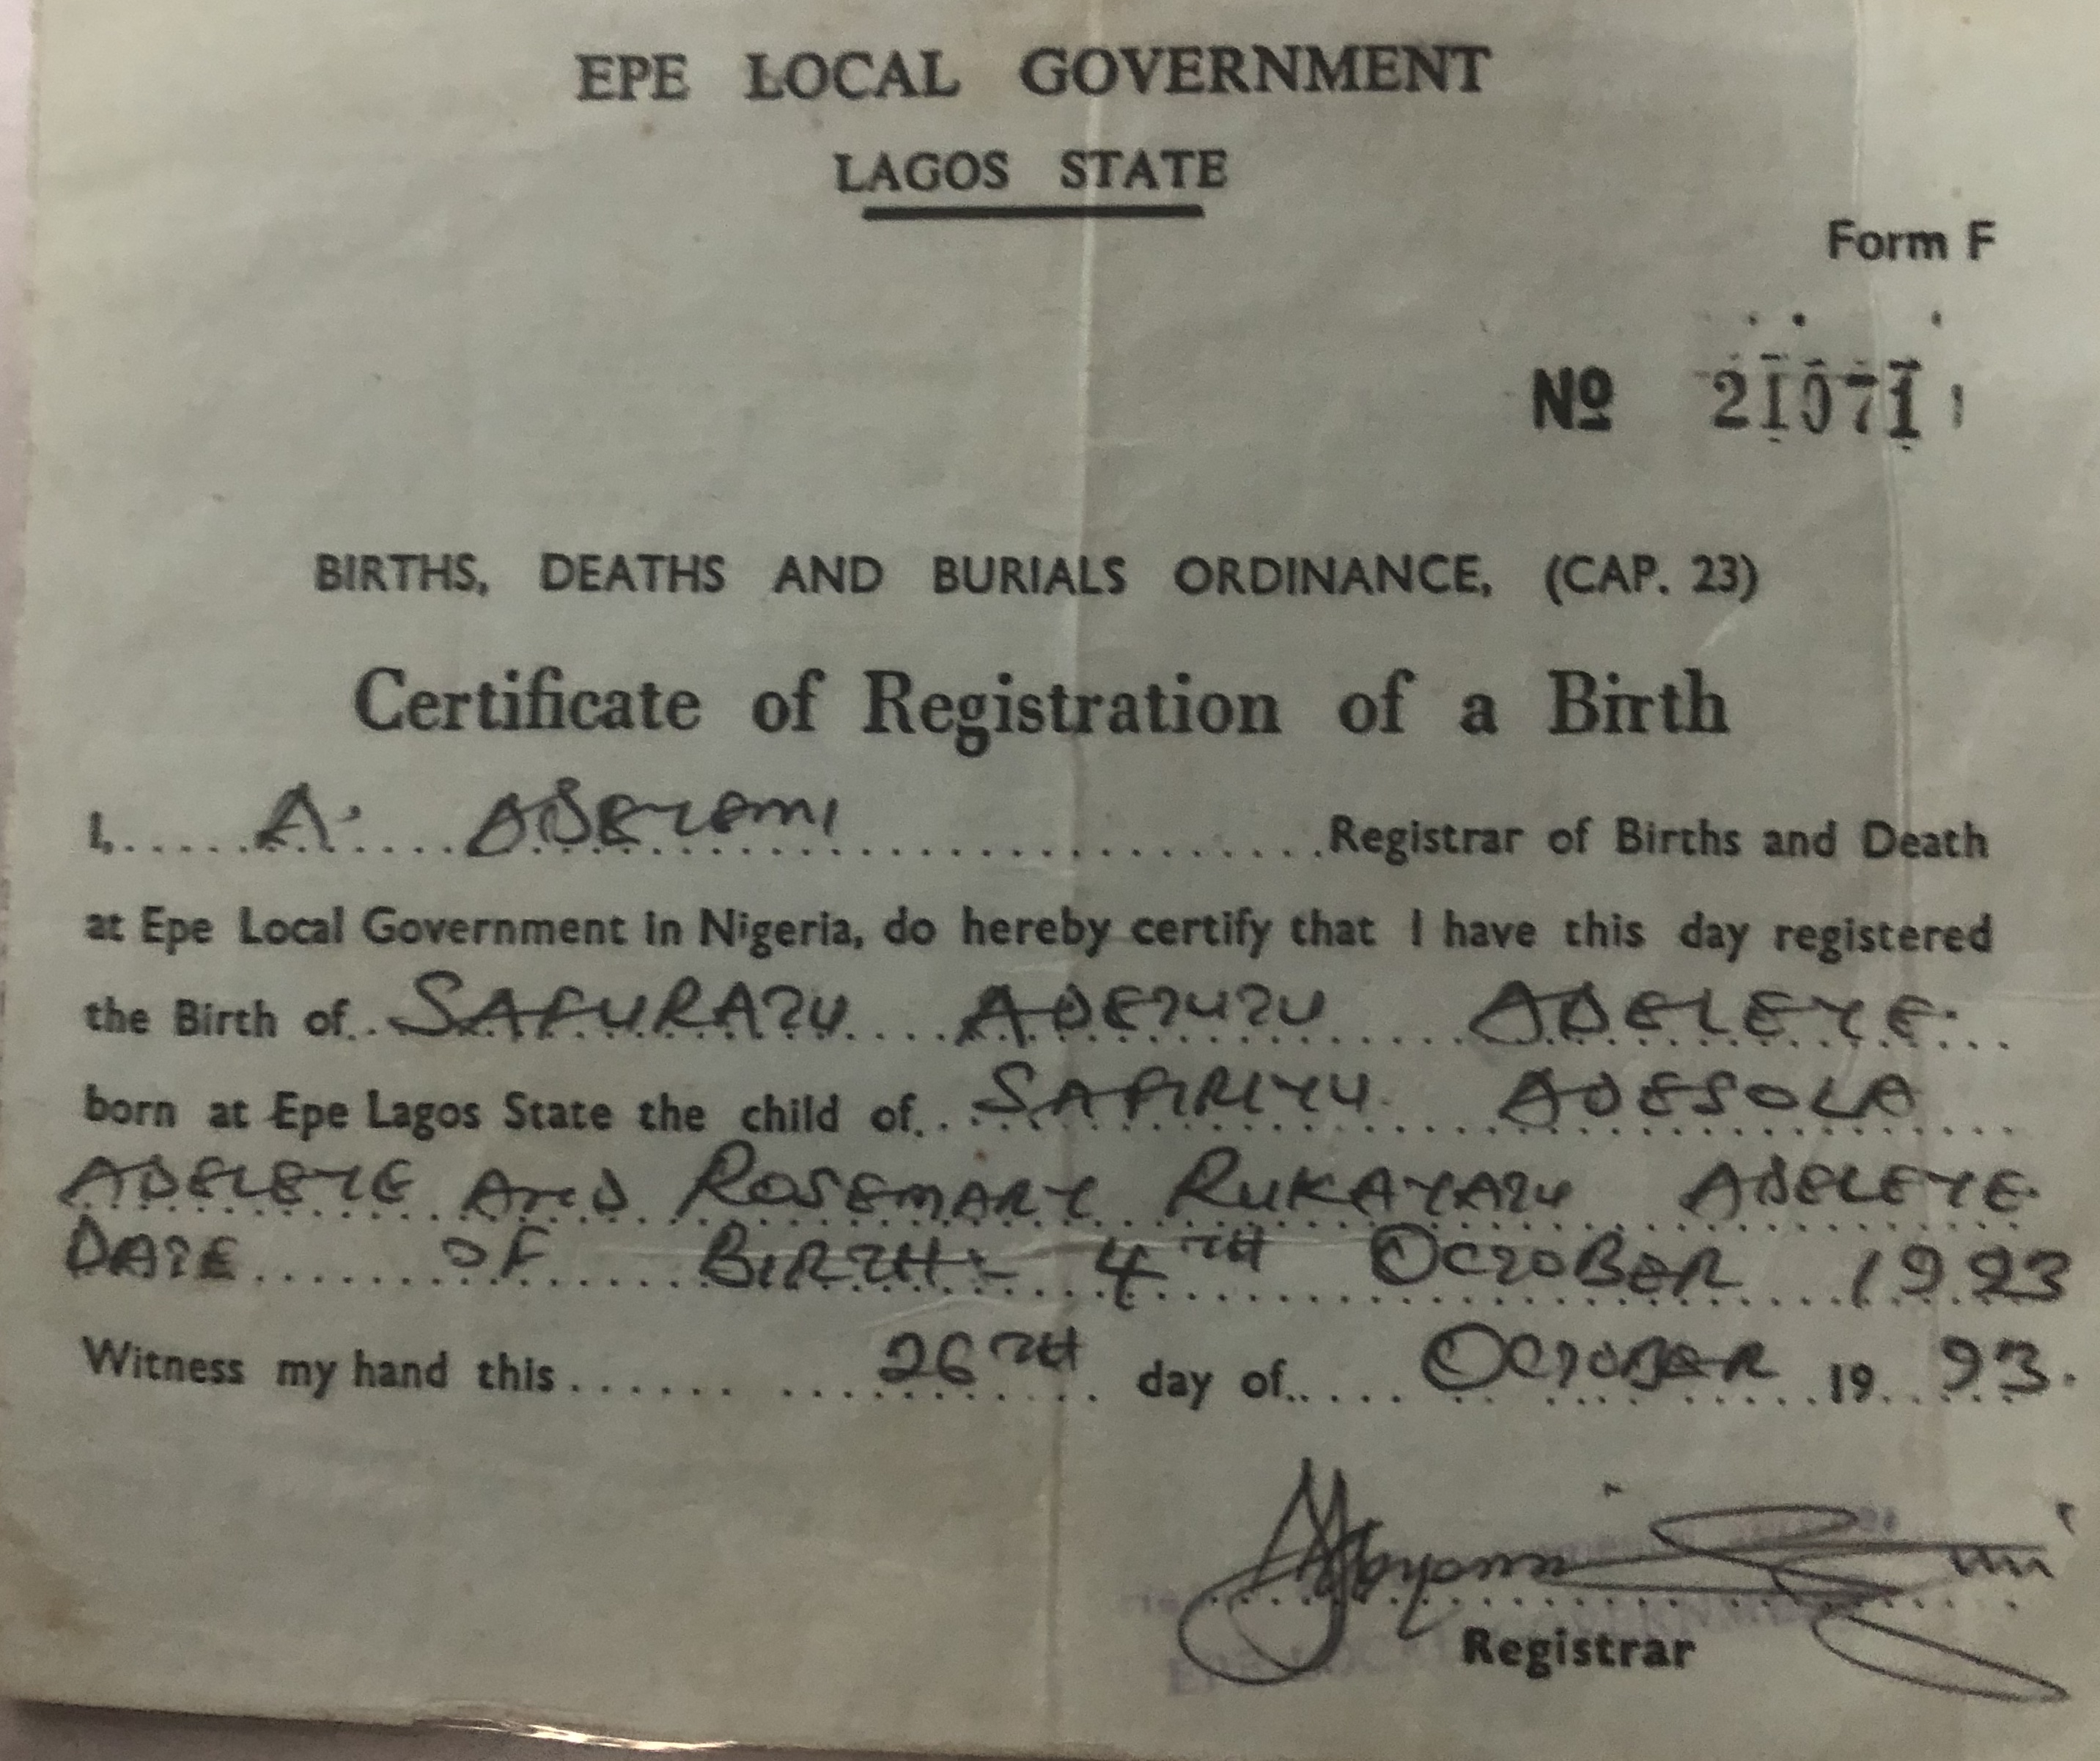 EPE LOCAL GOVERNMENT
LAGOS STATE
Form F
Nº 21071
BIRTHS, DEATHS AND BURIALS ORDINANCE, (CAP. 23)
Certificate of Registration of a Birth
I, A. ADEYEMI Registrar of Births and Death
at Epe Local Government in Nigeria, do hereby certify that I have this day registered
the Birth of SAFURATU ADETUTU ADELEYE.
born at Epe Lagos State the child of SAFIRIYU ADESOLA
ADELEYE AND ROSEMARY RUKAYATU ADELEYE.
DATE OF BIRTH:- 4TH OCTOBER 1993
Witness my hand this 26TH day of OCTOBER 1993.
Registrar